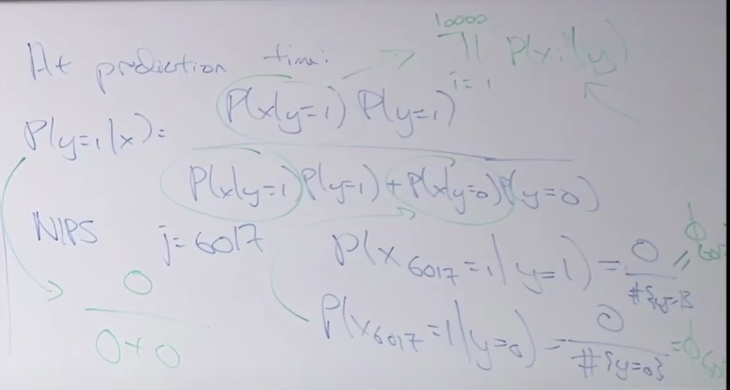 At prediction time:
10000
∏ P(xᵢ|y)
i=1
P(y=1|x)=
P(x|y=1) P(y=1)
P(x|y=1)P(y=1)+P(x|y=0)P(y=0)
NIPS j=6017
P(x₆₀₁₇=1|y=1) = 0/#{y=1}
P(x₆₀₁₇=1|y=0) = 0/#{y=0}
0
0+0